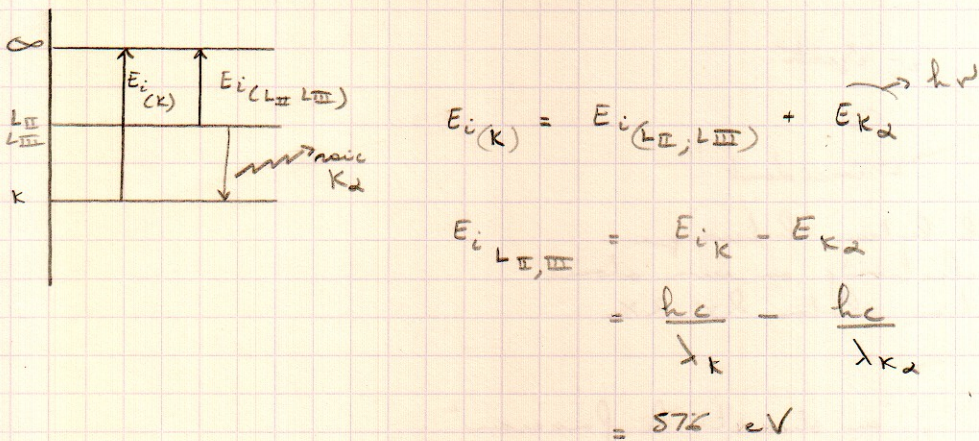 ∞
E_i(K)
E_i(L_II L_III)
L_II
L_III
raie
K_α
K
E_i(K) = E_i(L_II, L_III) + E_Kα → hν
E_i L_II,III = E_i K - E_Kα
= hc/λ_K - hc/λ_Kα
= 576 eV